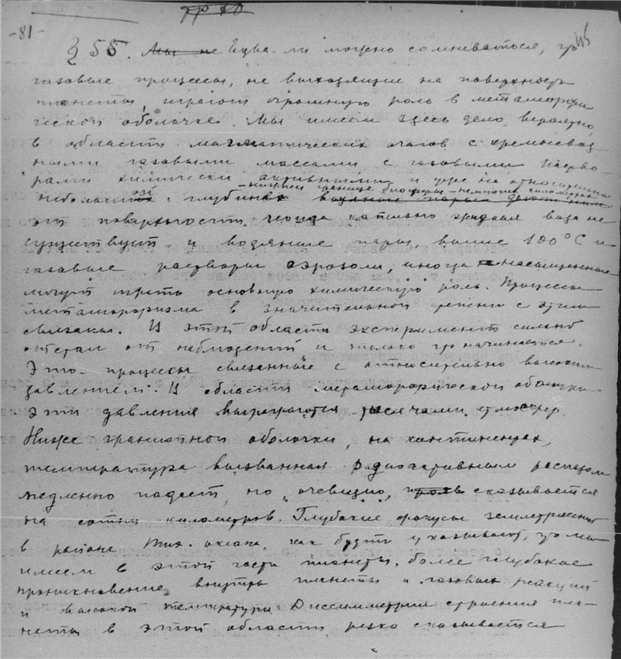 -81-
§ 55. Едва ли можно сомневаться, что
газовые процессы, не выходящие на поверхность
планеты, играют огромную роль в метаморфи
ческой оболочке. Мы имеем здесь дело, вероятно,
в области магматических очагов с кремневод
ными газовыми массами с газовыми раство
рами химически активными и уже на относительно
небольшой глубине
- нижней границе биосферы -
от поверхности геоида капельно жидкая вода не
существует и водяные пары, выше 180°С и
газовые растворы аэрозоли, иногда насыщенные
могут играть основную химическую роль. Процессы
метаморфизма в значительной степени с этим
связаны. В этой области эксперимент сильно
отстал от наблюдений и только что начинается.
Это процессы связанные с относительно высоким
давлением. В области метаморфической оболочки
эти давления выражаются тысячами атмосфер
Ниже гранитной оболочки, на континентах,
температура вызванная радиоактивным распадом
медленно падает, но, очевидно, сказывается
на сотни километров. Глубокие фокусы землетрясений
в районе Тих. океана, как будто указывают, что мы
имеем в этой части планеты, более глубокое
проникновение внутрь планеты газовых реакций
и высокой температуры. Диссимметрия строения пла-
неты в этой области резко сказывается